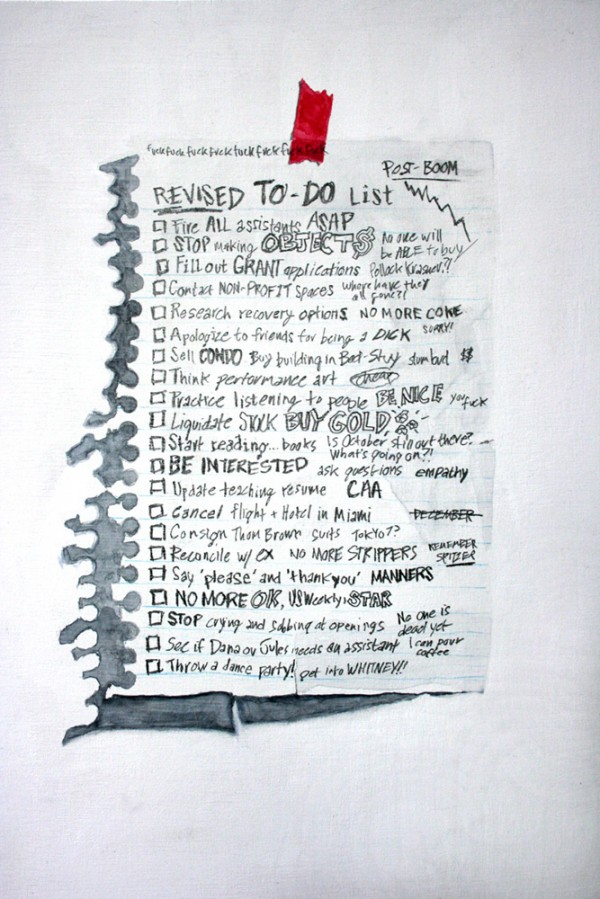 fuckfuckfuckfuckfuckfuckfuckfuck
POST-BOOM
REVISED TO-DO List
Fire ALL assistants ASAP
STOP making OBJECT$ No one will be ABLE to buy
Fill out GRANT applications Pollock Krasner?!
Contact NON-PROFIT spaces where have they all gone?!
Research recovery options NO MORE COKE
Apologize to friends for being a DICK SORRY!!
Sell CONDO Buy building in Bed-Stuy $$
Think performance art cheap
Practice listening to people BE NICE you fuck
Liquidate STOCK BUY GOLD
Start reading... books Is October still out there? What's going on?!
BE INTERESTED ask questions empathy
Update teaching resume CAA
Cancel flight + Hotel in Miami DECEMBER
Consign Thom Brown suits TOKYO??
Reconcile w/ ex NO MORE STRIPPERS REMEMBER SPITZER
Say 'please' and 'thankyou' MANNERS
NO MORE OK, US Weekly, STAR
STOP crying and sobbing at openings No one is dead yet
See if Dana or Jules needs an assistant I can pour coffee
Throw a dance party! get into WHITNEY!!